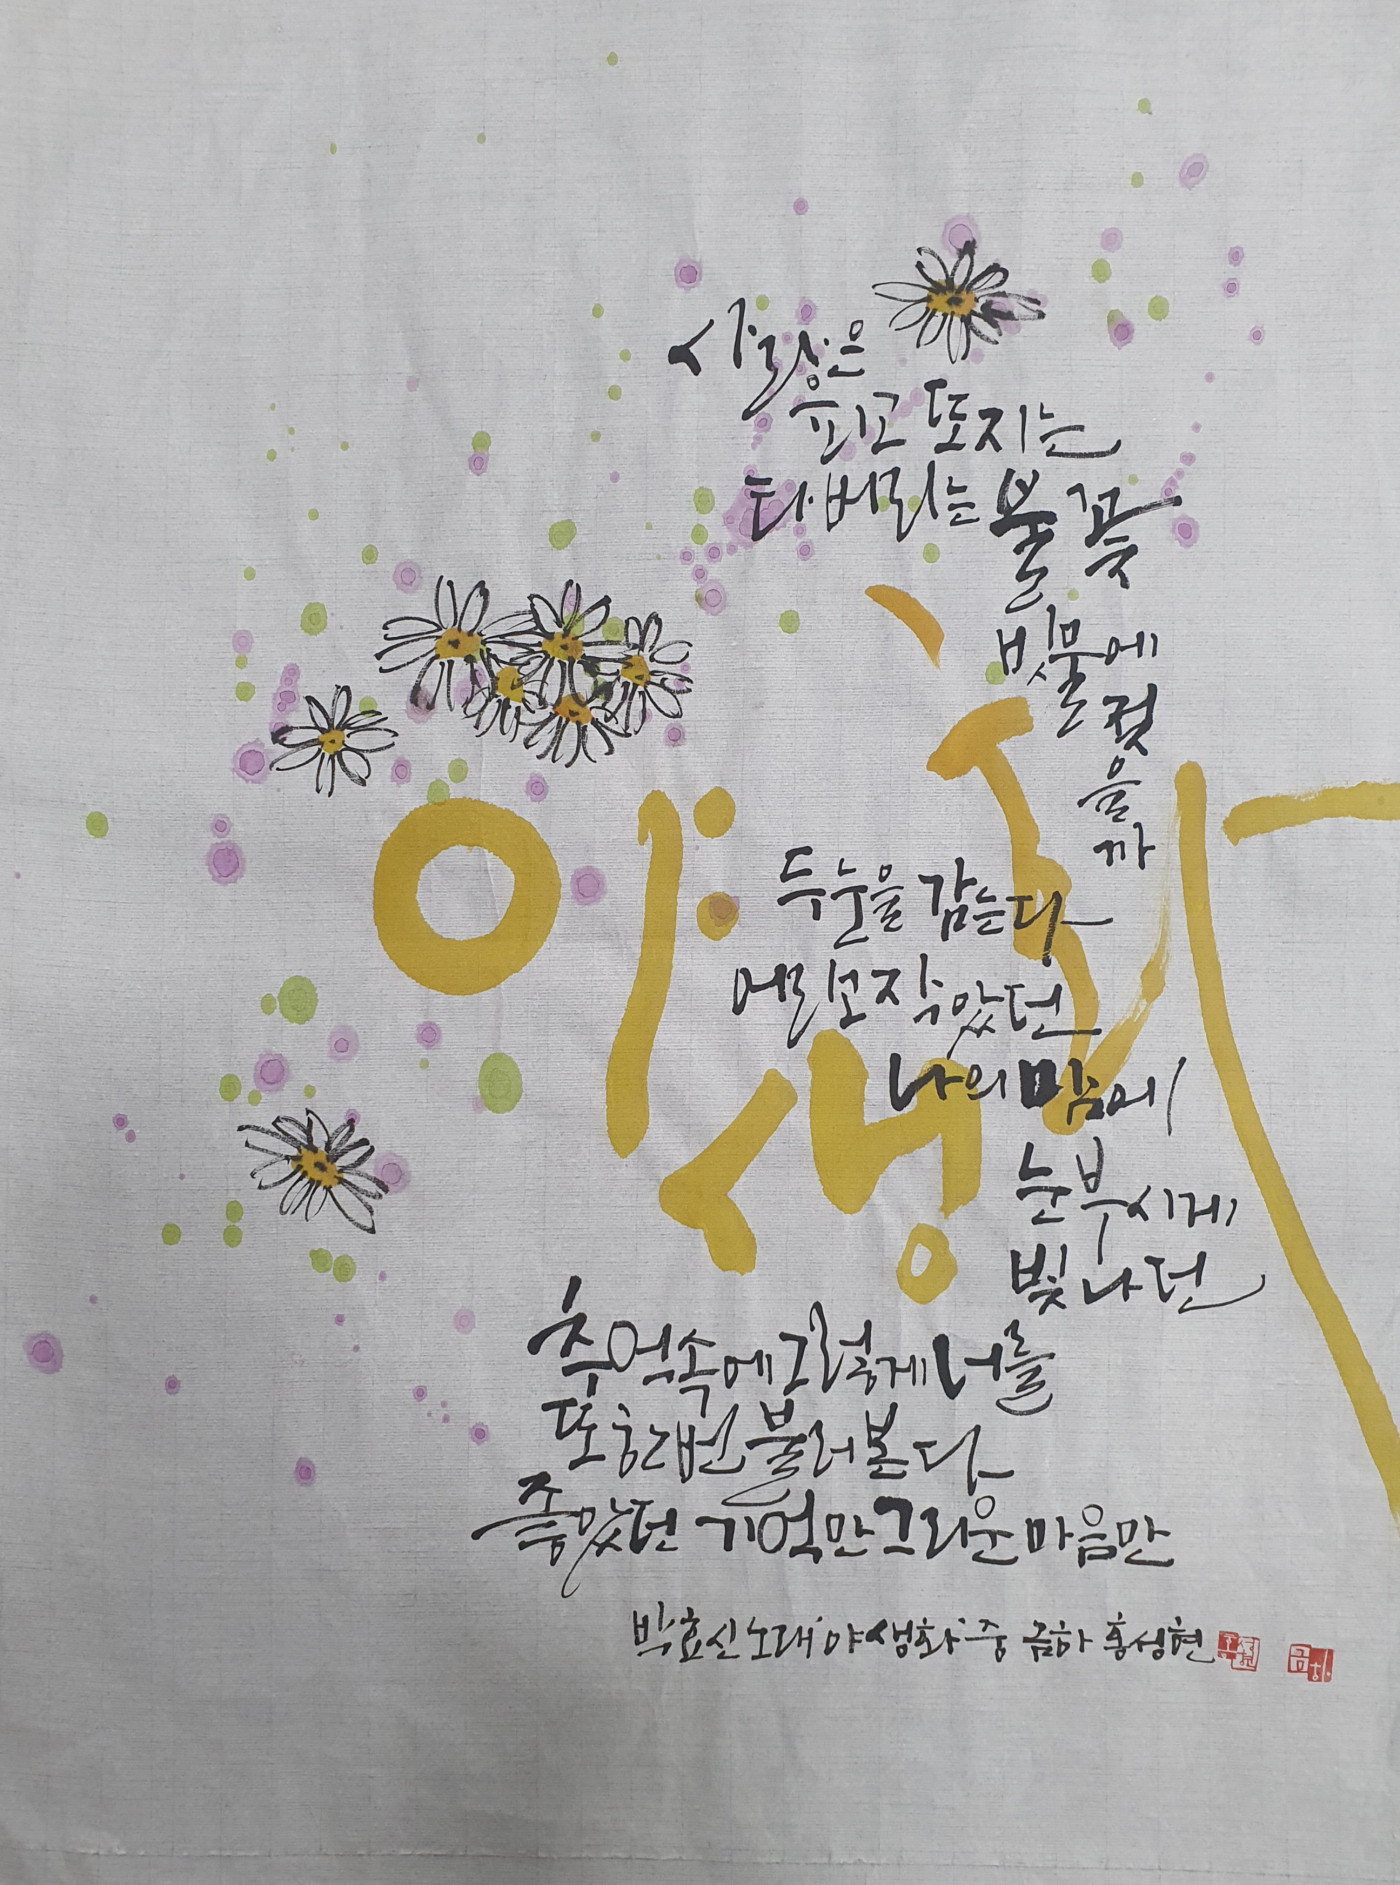 사랑은
피고 또 지는
타버리는 불꽃
빗물에
젖
을
까
두 눈을 감는다
어리고 작았던
나의 맘에
눈부시게
빛나던
추억 속에 그렇게 너를
또 한 번 불러본다
좋았던 기억만 그리운 마음만
야생화
박효신 노래 '야생화' 중 금하 홍성현
금하